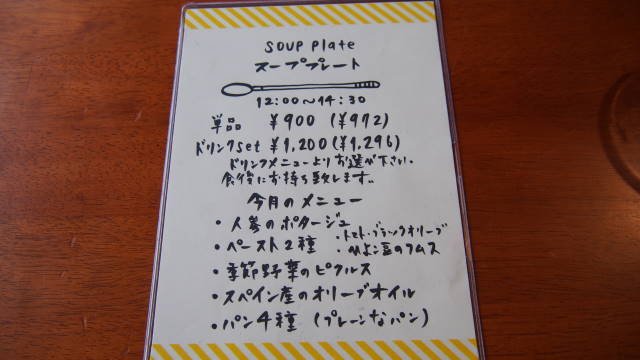 SOUP Plate
スーププレート
12:00〜14:30
単品 ¥900 (¥972)
ドリンクset ¥1,200(¥1,296)
ドリンクメニューよりお選び下さい。
食後にお持ち致します。
今月のメニュー
・人参のポタージュ
・ペースト2種 ・トマト・ブラックオリーブ
・ひよこ豆のフムス
・季節野菜のピクルス
・スペイン産のオリーブオイル
・パン4種 (プレーンなパン)